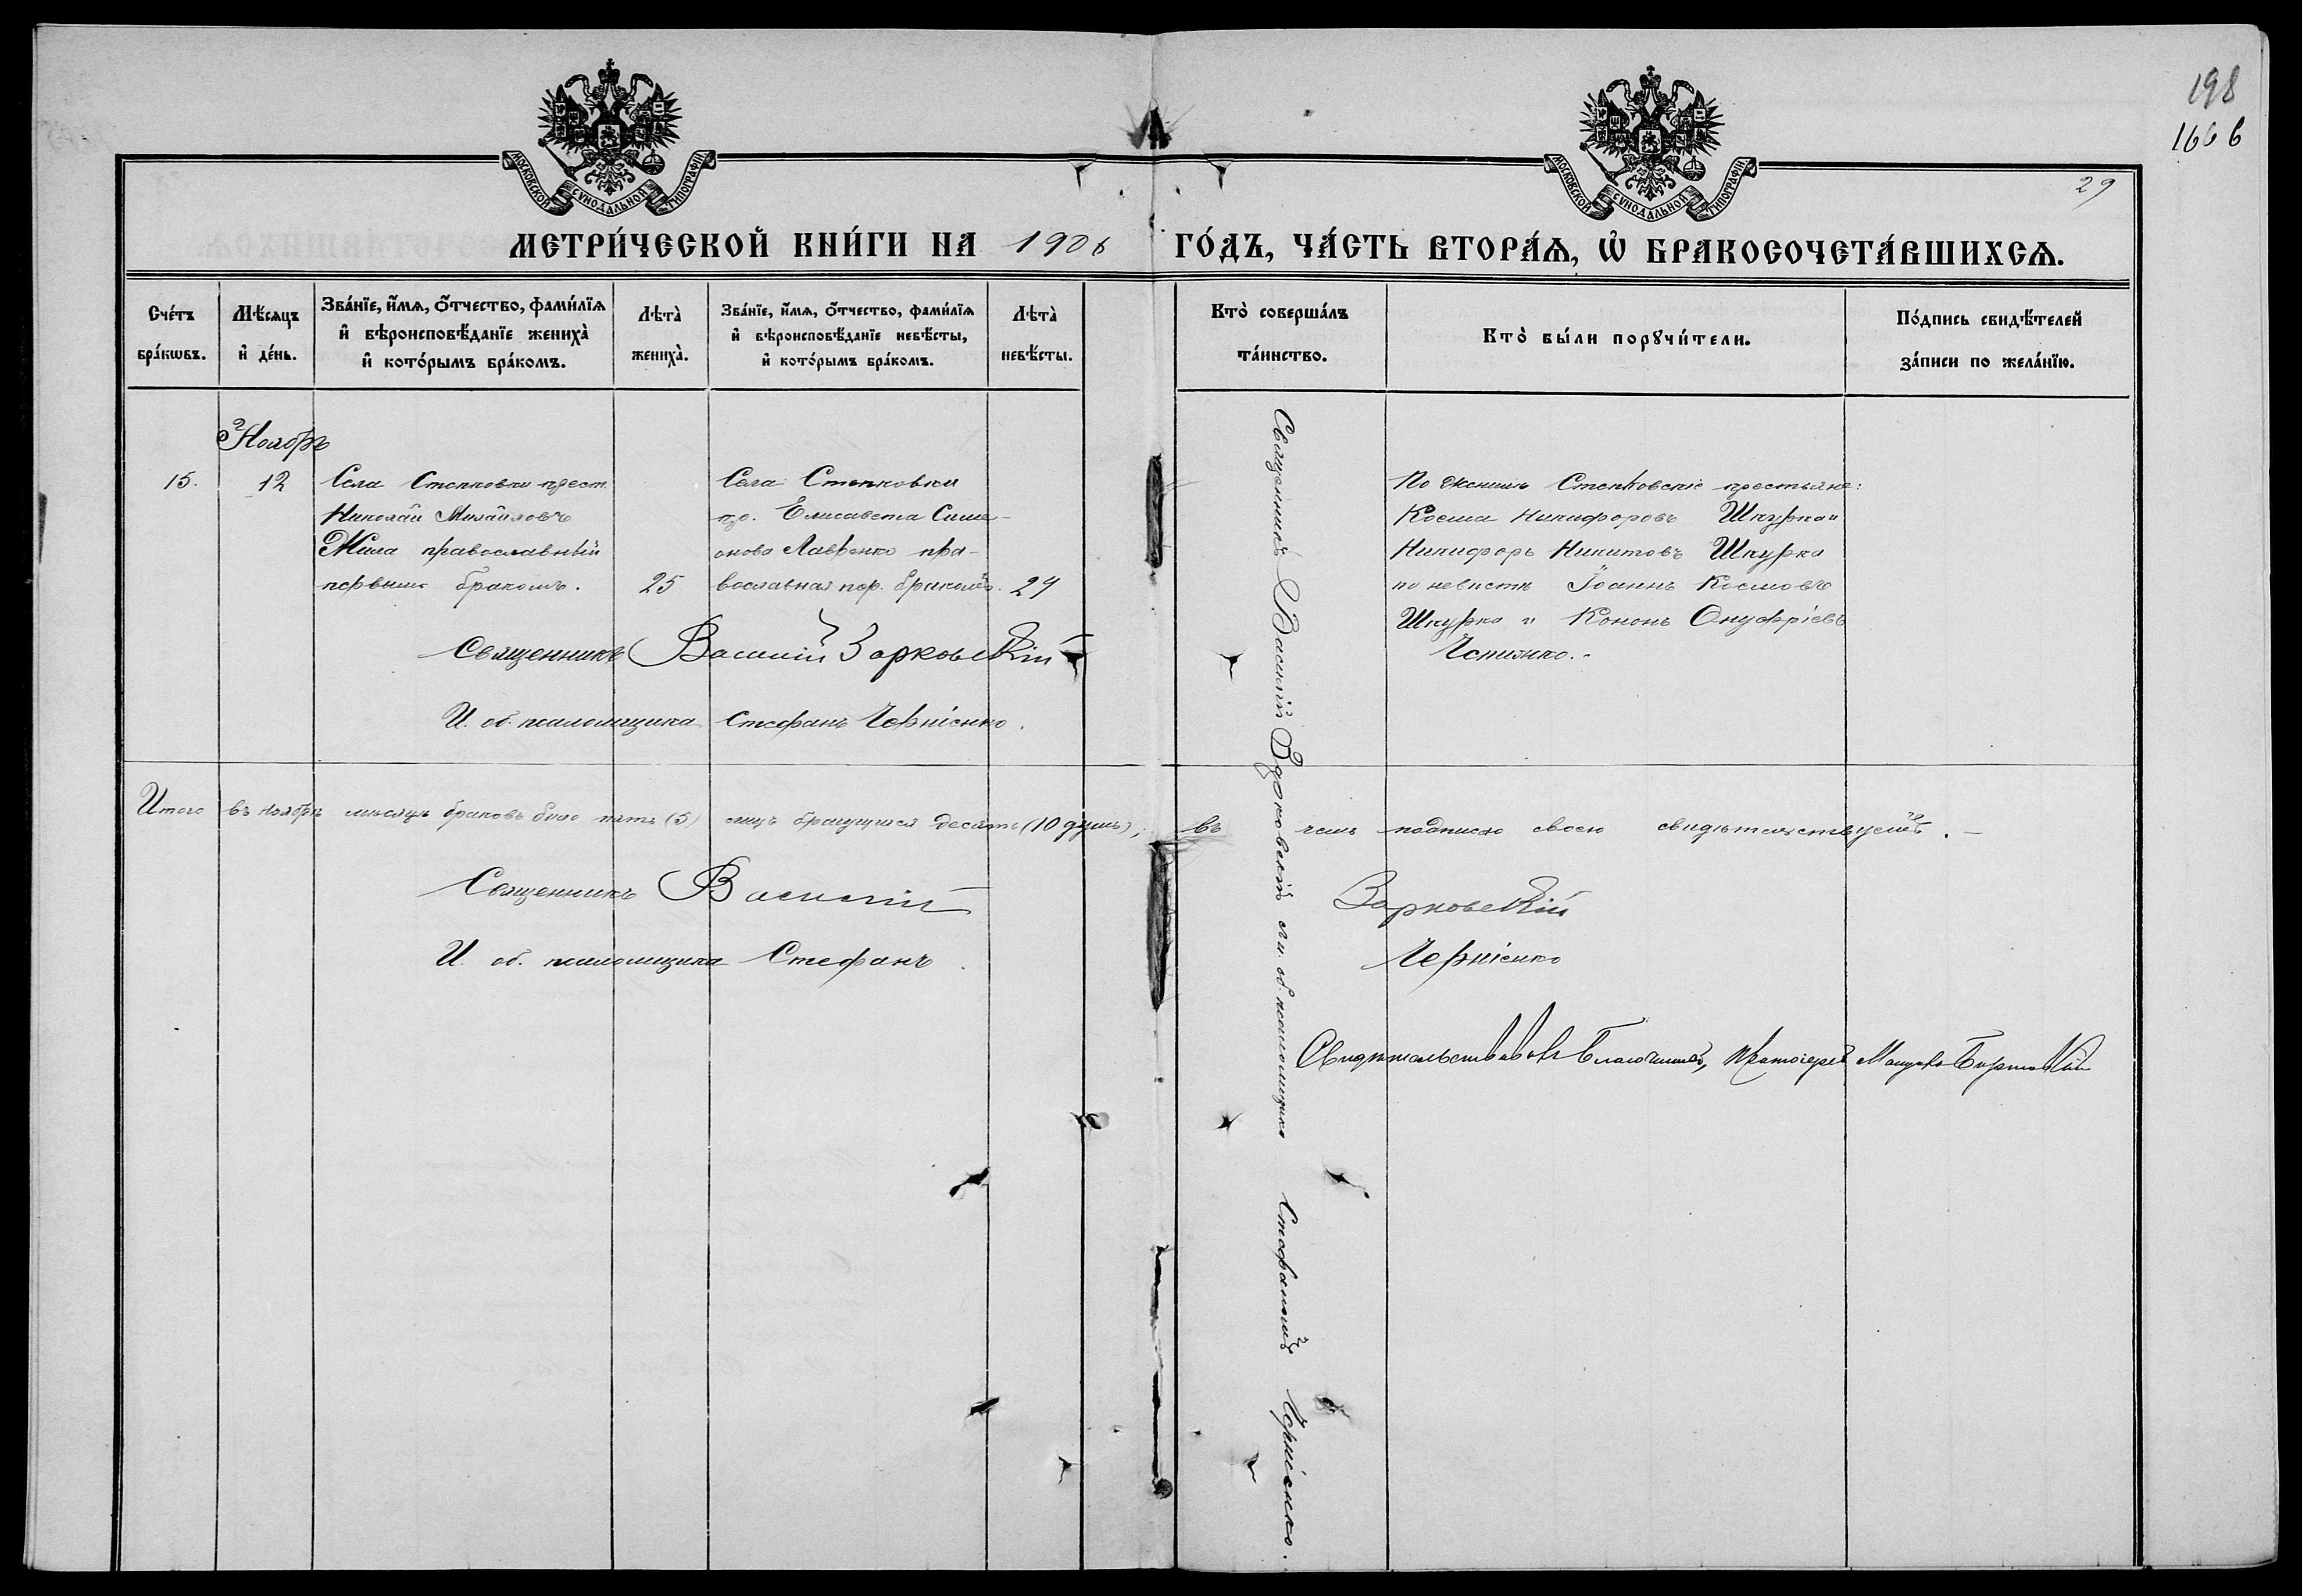 198
166 6
29
МОСКОВСКОЙ СѴНОДАЛЬНОЙ ТИПОГРАФІИ
МОСКОВСКОЙ СѴНОДАЛЬНОЙ ТИПОГРАФІИ
МЕТРИ́ЧЕСКОЙ КНИ́ГИ НА 1906 ГО́ДЪ, ЧА́СТЬ ВТОРА́Ѧ, Ѡ҆ БРАКОСОЧЕТА́ВШИХСѦ.
Сче́тъ бра́кѡвъ.
Мѣ́сяцъ и҆ де́нь.
Зва́нїе, и҆́мѧ, ѻ҆́тчество, фами́лїѧ и҆ вѣроисповѣ́данїе жениха̀ и҆ кото́рымъ бра́комъ.
Лѣта̀ жениха̀.
Зва́нїе, и҆́мѧ, ѻ҆́тчество, фами́лїѧ и҆ вѣроисповѣ́данїе невѣ́сты, и҆ кото́рымъ бра́комъ.
Лѣта̀ невѣ́сты.
Кто̀ соверша́лъ та́инство.
Кто̀ бы́ли порꙋчи́тели.
По́дпись свидѣ́телей за́писи по жела́нїю.
Ноябрь
15.
12
Села Степковки крест.
Николай Михайловъ
Жила православный
первымъ бракомъ.
25
Села Степковки
кр. Елисавета Симе-
онова Лавренко пра-
вославная пер. бракомъ.
24
Священникъ Василій Зарковскій и и. об. псаломщика Стефаномъ Черніенко.
По женихѣ Степковскіе крестьяне:
Косма Никифоровъ Шкурко и
Никифоръ Никитовъ Шкурко
по невѣстѣ Іоаннъ Космовъ
Шкурко и Кононъ Онуфріевъ
Священникъ Василій Зарковскій
И. об. псаломщика Стефанъ Черніенко.
Итого въ ноябрѣ мѣсяцѣ браковъ было пять (5) лицъ брачущихся десять (10 душъ), въ чемъ подписью своею свидѣтельствуемъ.
Священникъ Василій Зарковскій
И. об. псаломщика Стефанъ Черніенко
Свидѣтельствовалъ Благочинный, Протоіерей